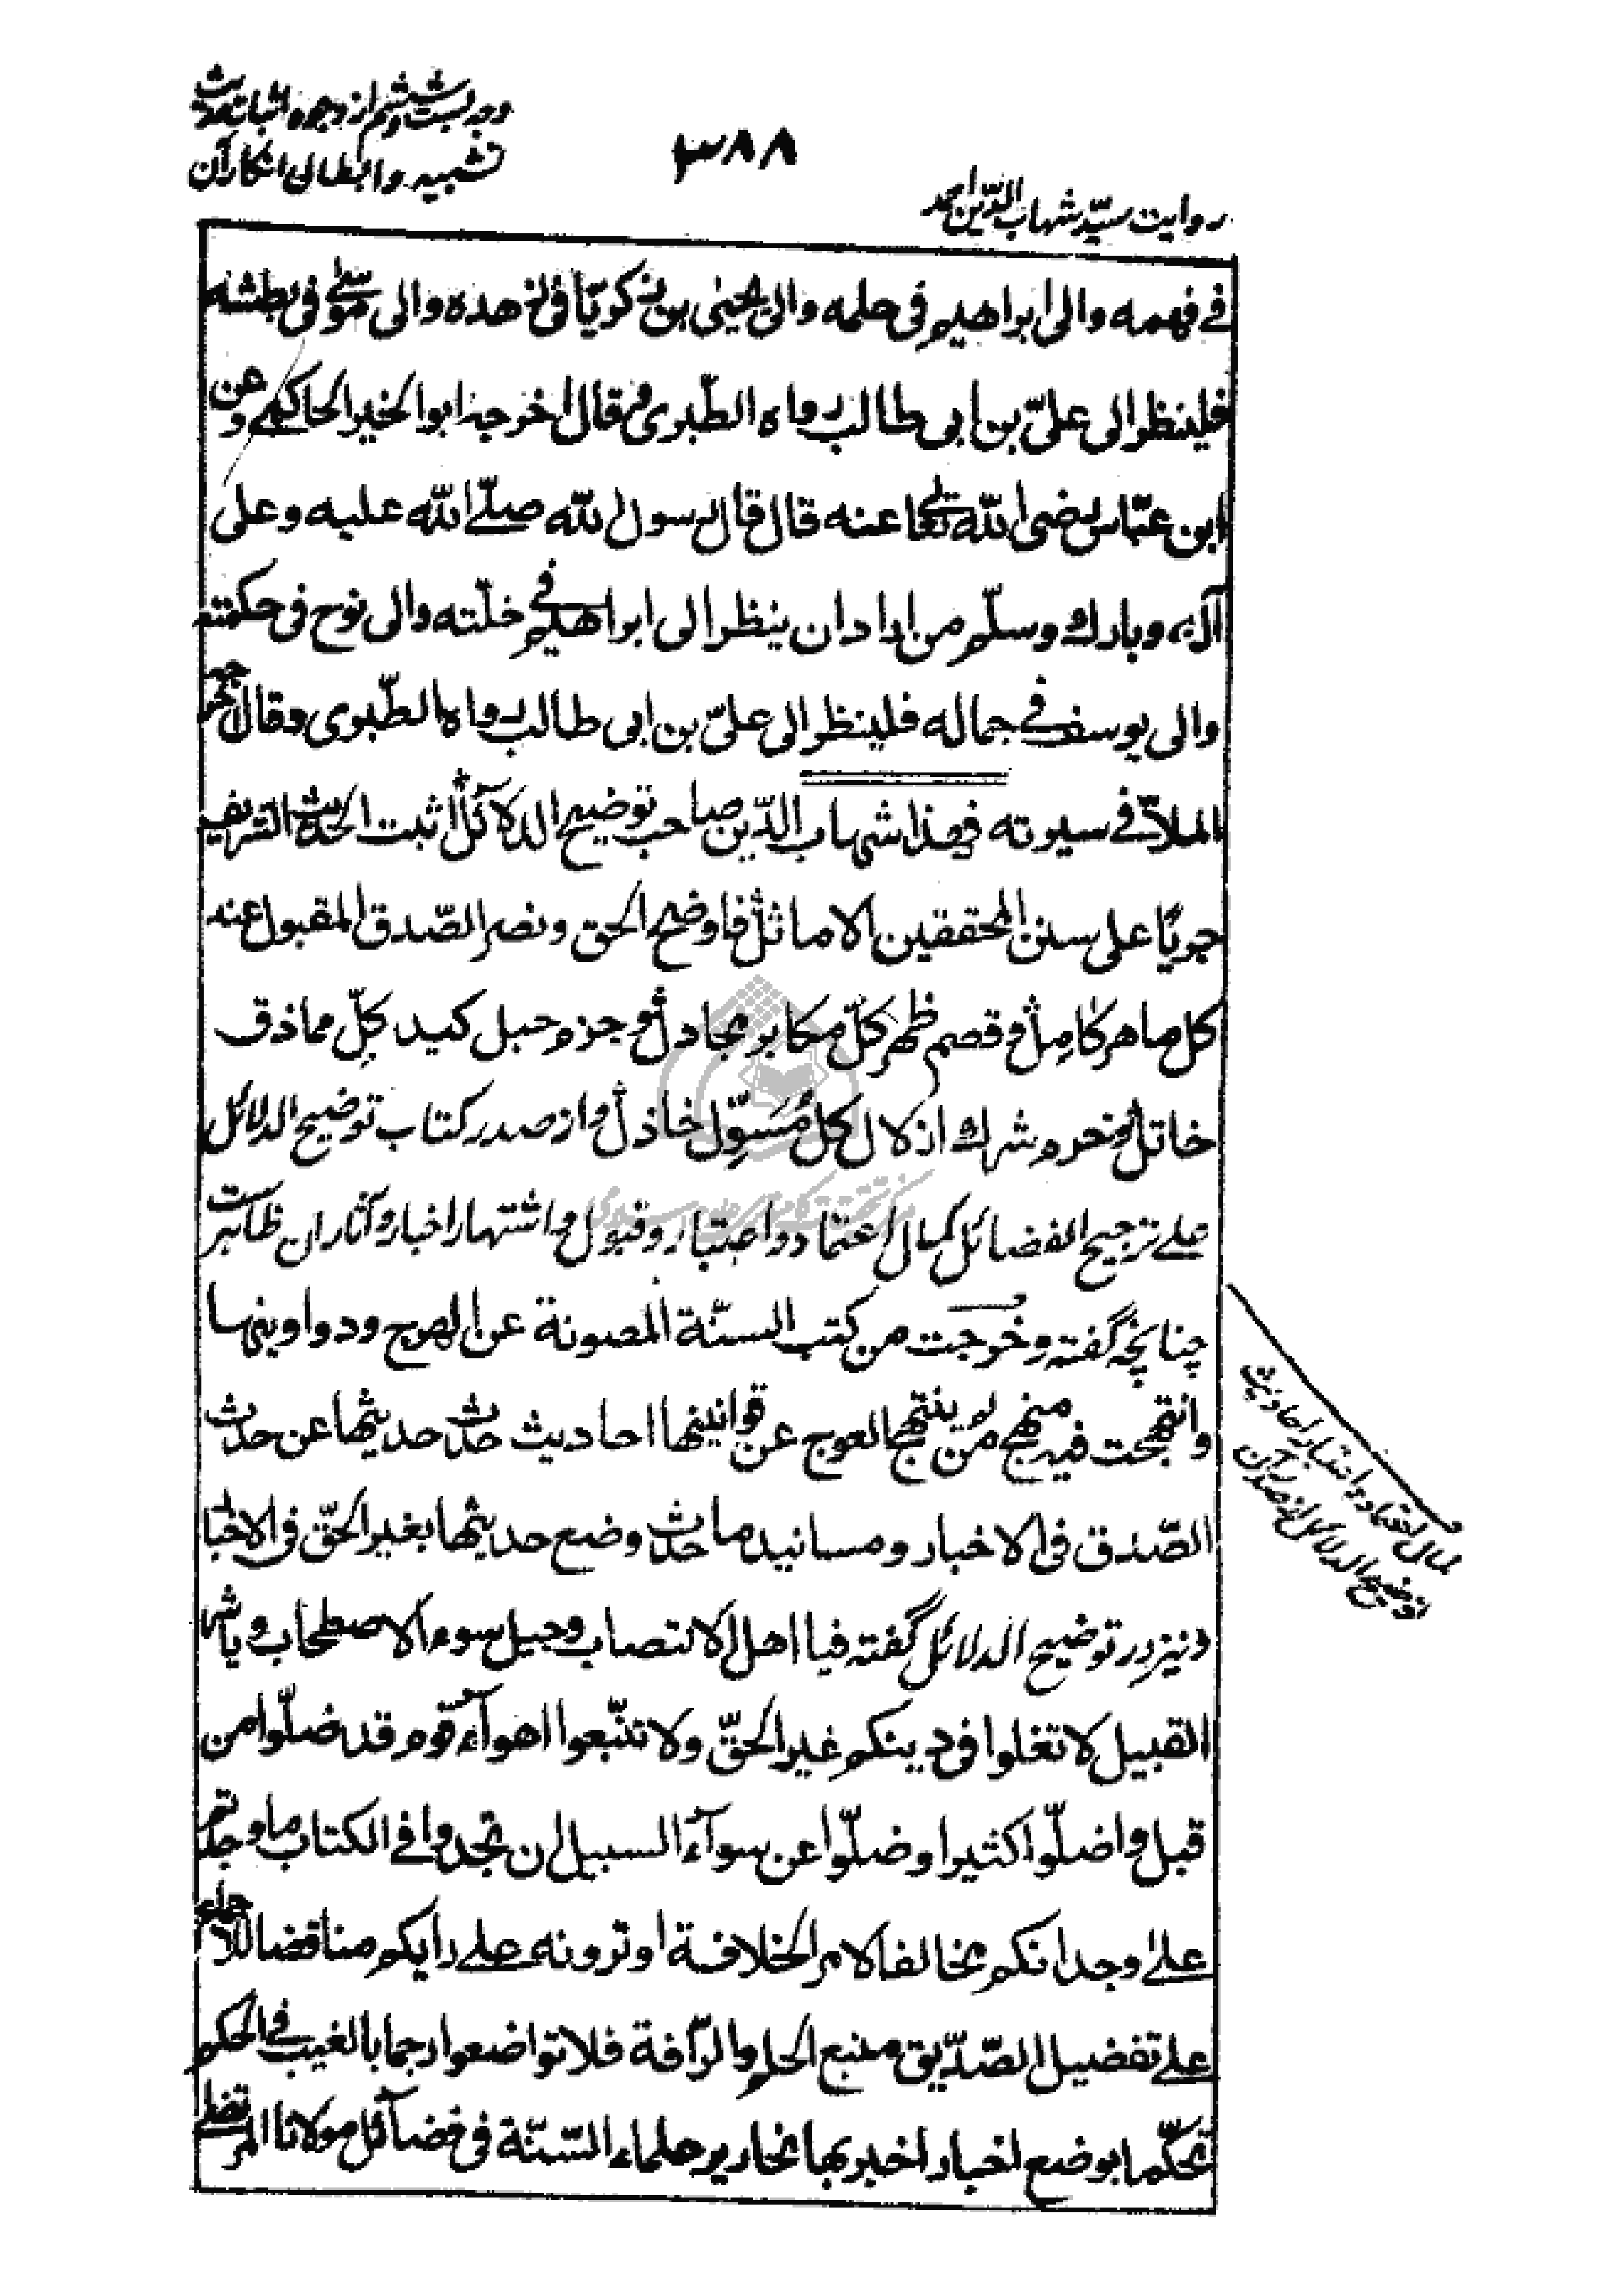 وجه بست وششم از وجوه اثبات حدیث
تشبیه وابطال انکار آن
۳۸۸
روایت سیّد شهاب الدّین احمد
فی فهمه والی ابراهیم فی حلمه والی یحیی بن زکریّا فی زهده والی موسی فی بطشه
فلینظر الی علیّ بن ابی طالب رواه الطّبری وقال اخرجه ابو الخیر الحاکمی وعن
ابن عبّاس رضی الله تعا عنه قال قال رسول الله صلّی الله علیه وعلی
آله وبارك وسلّم من اراد ان ینظر الی ابراهیم فی خلّته والی نوح فی حکمته
والی یوسف فی جماله فلینظر الی علیّ بن ابی طالب رواه الطّبری وقال اخرجه
الملاّ فی سیرته فهذا شهاب الدّین صاحب توضیح الدلائل اثبت الحدیث الشریف
جریًا علی سنن المحققین الاماثل فاوضح الحق ونصر الصّدق المقبول عنه
کل ماهر کامل وقصم ظهر کلّ مکابر مجادل وجزم حبل کید کلّ مماذق
خاتل وخرم شرك ازلال کلّ مُسَوِّل خاذل واز صدر کتاب توضیح الدلائل
علی ترجیح الفضائل کمال اعتماد واعتبار وقبول واشتهار اخبار وآثار ان ظاهرست
چنانچه گفته وخرجت من کتب السنّة المصونة عن الهرج ودواوینها
وانتهجت فیه منهج من لم ینتهج العوج عن قوانینها احادیث حدث حدیثها عن حدث
الصّدق فی الاخبار ومسانید ما حدث وضع حدیثها بغیر الحقّ فی الاخبا
ونیز در توضیح الدلائل گفته فیا اهل الانتصاب وجیل سوء الاصطحاب ویا شر
القبیل لا تغلوا فی دینکم غیر الحقّ ولا تتّبعوا اهوآء قوم قد ضلّوا من
قبل واضلّوا کثیرا وضلّوا عن سوآء السبیل ان تجدوا فی الکتاب ما وجدتم
علی وجدانکم مخالفا لامر الخلافة او ترونه علی رایکم مناقضا للاجماع
علی تفضیل الصّدّیق منبع الحلم والرّافة فلا تواضعوا رجما بالغیب فی الحکم
تحکّما بوضع اخبار اخبر بها نحاریر علماء السّنّة فی فضآئل مولانا المرتضی
کمال اعتماد واعتبار احادیث
توضیح الدلائل از صدر آن